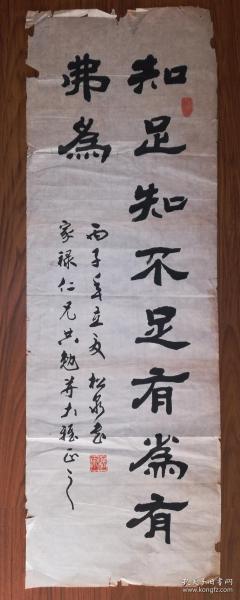 知足知不足有為有
弗為
丙子年立夏 松泉書
家禄仁兄共勉并大雅正之
孔夫子旧书网